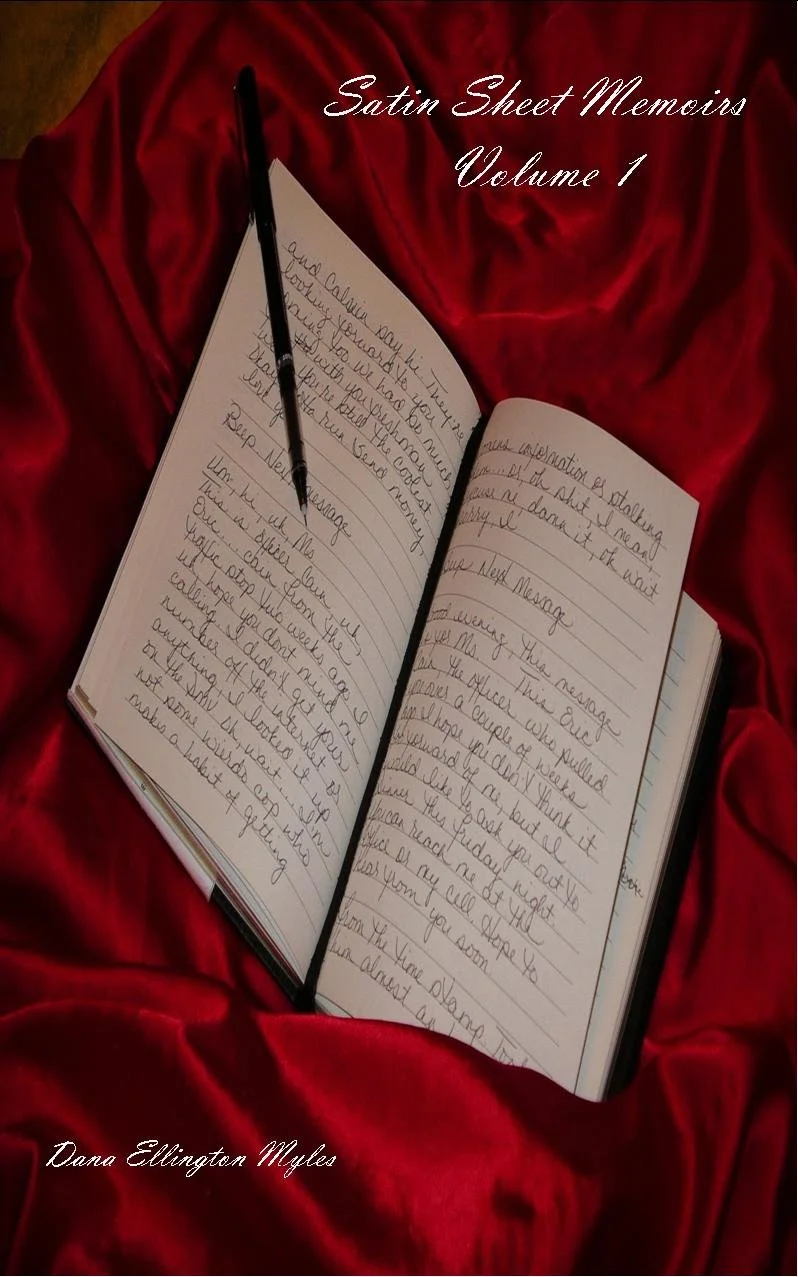 Satin Sheet Memoirs
Volume 1
and Calvin say hi. They're
looking forward to you
joining you we had so much
with you freshman
Okay you're the coolest
love ya run send money,
Beep. Next Message
Um, hi, uh, Ms
This is Officer Cain, uh,
Eric... Cain from the
traffic stop two weeks ago I
uh, hope you dont mind me
calling, I didn't get your
number off the internet or
anything, I looked it up
on the DMV oh wait... I'm
not some weirdo cop who
makes a habit of getting
information or stalking
or, oh shit I mean,
excuse me damn it, oh wait
sorry, I
Beep Next Message
Good evening, this message
for Ms. This Eric
Cain, the officer who pulled
you over a couple of weeks
ago I hope you don't think it
forward of me, but I
would like to ask you out to
dinner this Friday night.
You can reach me at the
office or my cell Hope to
hear from you soon
from the time stamp
him almost an
Dana Ellington Myles